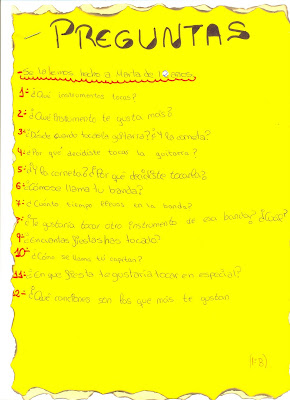 - PREGUNTAS
- Se la hemos hecho a Marta de 12 años.
1- ¿Qué instrumentos tocas?
2- ¿Qué instrumento te gusta más?
3- ¿Desde cuando tocas la guitarra? ¿Y la corneta?
4- ¿Por qué decidiste tocar la guitarra?
5- ¿Y la corneta? ¿Por qué decidiste tocarla?
6- ¿Cómo se llama tu banda?
7- ¿Cuánto tiempo llevas en la banda?
¿Te gustaria tocar otro instrumento de esa banda? ¿Cuál?
9- ¿En cuantas fiestas has tocado?
10- ¿Cómo se llama tu capitan?
11- ¿En que fiesta te gustaria tocar en especial?
12- ¿Qué canciones son las que más te gustan